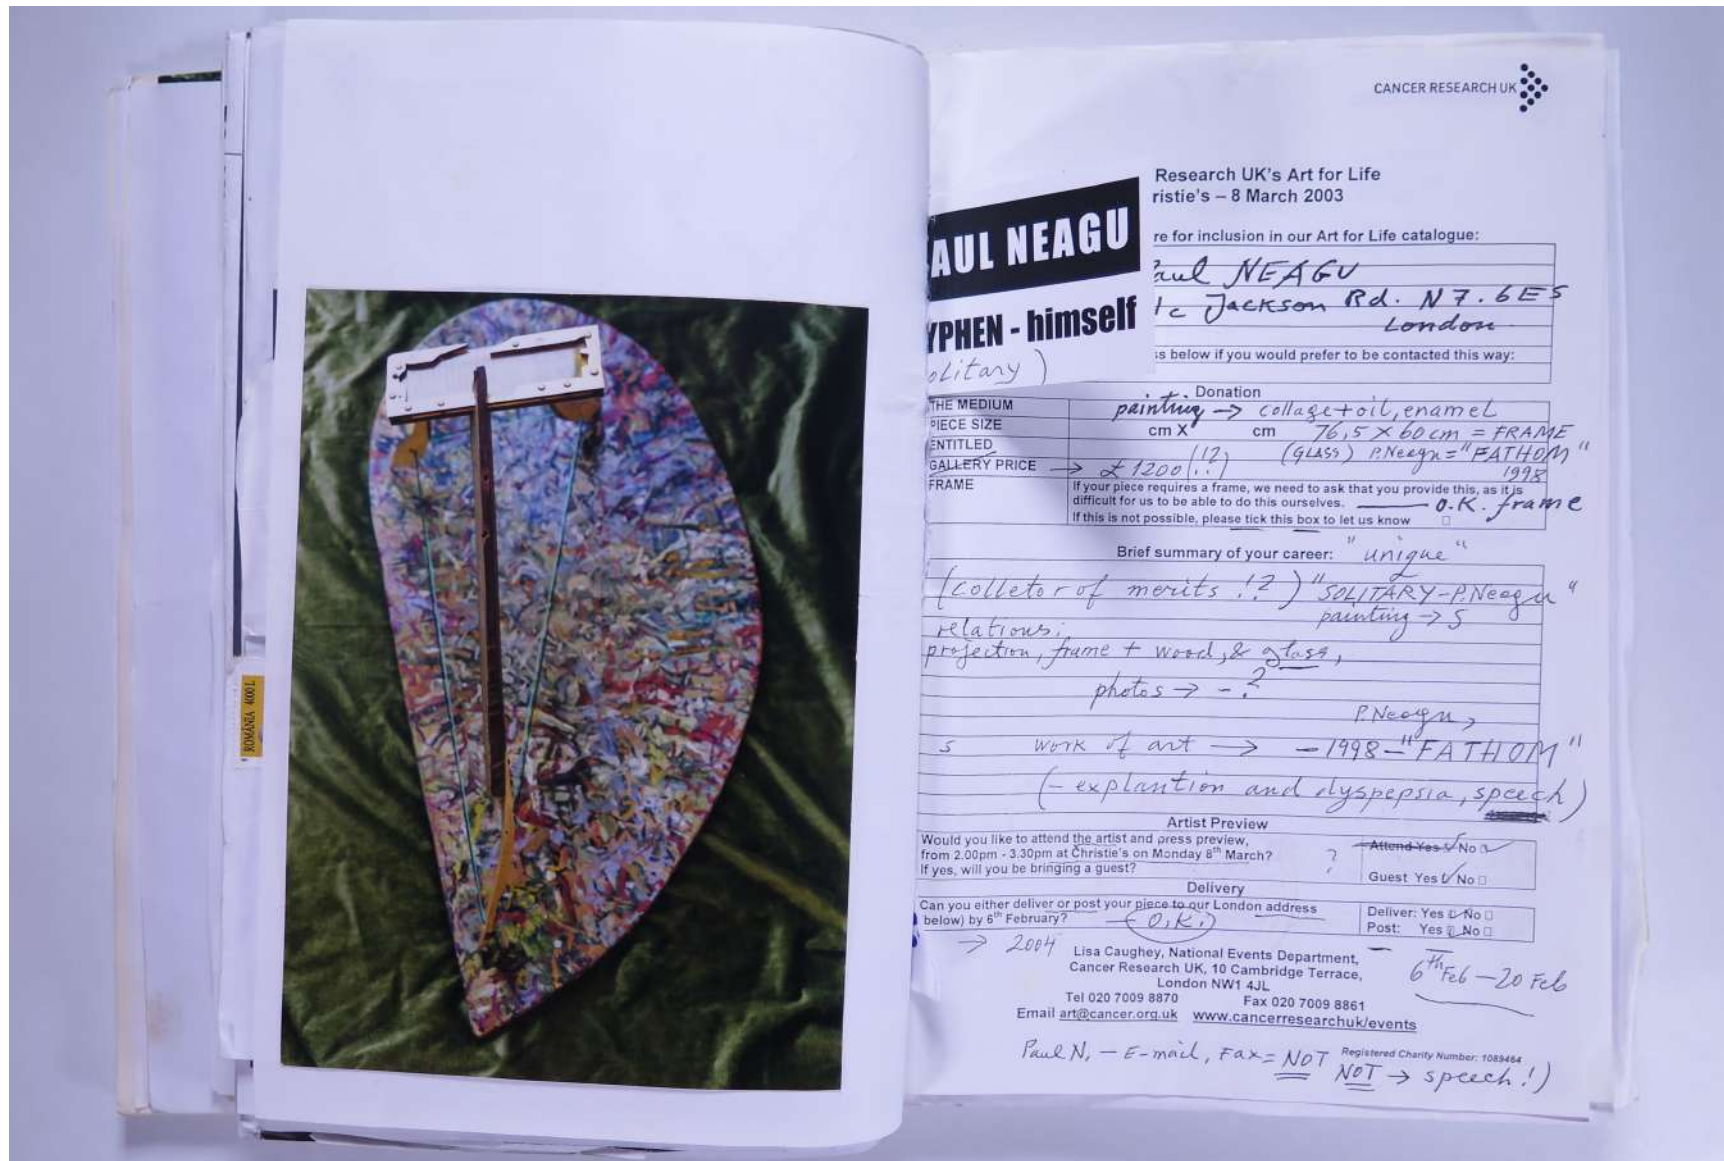 ROMÂNIA 4000 L
CANCER RESEARCH UK
Research UK's Art for Life
ristie's – 8 March 2003
AUL NEAGU
YPHEN - himself
olitary )
re for inclusion in our Art for Life catalogue:
aul NEAGU
1c Jackson Rd. N7.6ES
London
ss below if you would prefer to be contacted this way:
Donation
THE MEDIUM painting → collage + oil, enamel
PIECE SIZE cm X cm 76,5 X 60 cm = FRAME
ENTITLED (GLASS) P.Neagu = "FATHOM"
GALLERY PRICE → £ 1200 (!?) 1998
FRAME If your piece requires a frame, we need to ask that you provide this, as it is
difficult for us to be able to do this ourselves. — O.K. frame
If this is not possible, please tick this box to let us know
Brief summary of your career: "unique"
(colletor of merits !?) "SOLITARY – P.Neagu"
painting → S
relations;
projection, frame + wood, & glass,
photos → - ?
P.Neagu,
S work of art → – 1998 – "FATHOM"
(– explantion and dyspepsia, speech)
Artist Preview
Would you like to attend the artist and press preview,
from 2.00pm - 3.30pm at Christie's on Monday 8th March? ? Attend Yes No
If yes, will you be bringing a guest? Guest Yes No
Delivery
Can you either deliver or post your piece to our London address Deliver: Yes No
below) by 6th February? – (O.K.) Post: Yes No
→ 2004
Lisa Caughey, National Events Department,
Cancer Research UK, 10 Cambridge Terrace, 6th Feb – 20 Feb
London NW1 4JL
Tel 020 7009 8870 Fax 020 7009 8861
Email art@cancer.org.uk www.cancerresearchuk/events
Registered Charity Number: 1089464
Paul N, – E-mail, Fax = NOT
NOT → speech!)